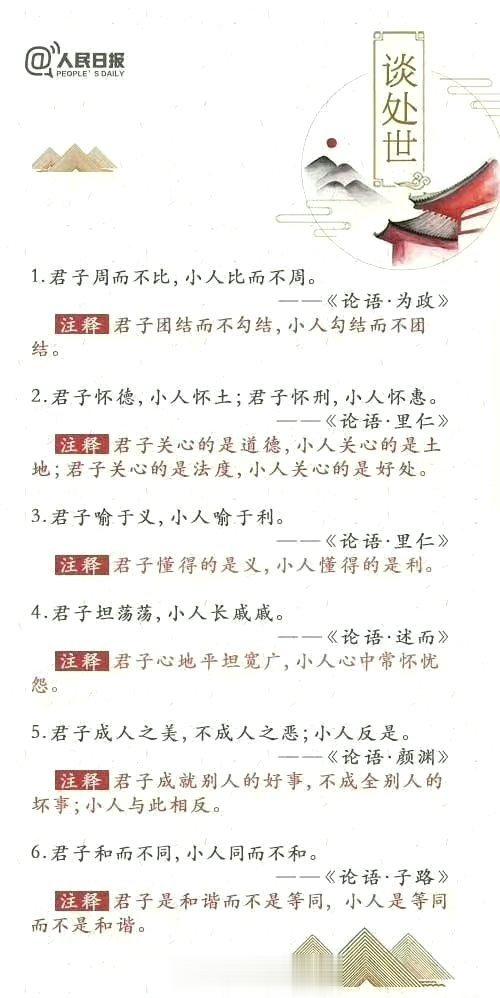 @人民日报
PEOPLE'S DAILY
谈处世
1.君子周而不比,小人比而不周。
——《论语·为政》
注释 君子团结而不勾结,小人勾结而不团
结。
2.君子怀德,小人怀土;君子怀刑,小人怀惠。
——《论语·里仁》
注释 君子关心的是道德,小人关心的是土
地;君子关心的是法度,小人关心的是好处。
3.君子喻于义,小人喻于利。
——《论语·里仁》
注释 君子懂得的是义,小人懂得的是利。
4.君子坦荡荡,小人长戚戚。
——《论语·述而》
注释 君子心地平坦宽广,小人心中常怀忧
怨。
5.君子成人之美,不成人之恶;小人反是。
——《论语·颜渊》
注释 君子成就别人的好事,不成全别人的
坏事;小人与此相反。
6.君子和而不同,小人同而不和。
——《论语·子路》
注释 君子是和谐而不是等同,小人是等同
而不是和谐。